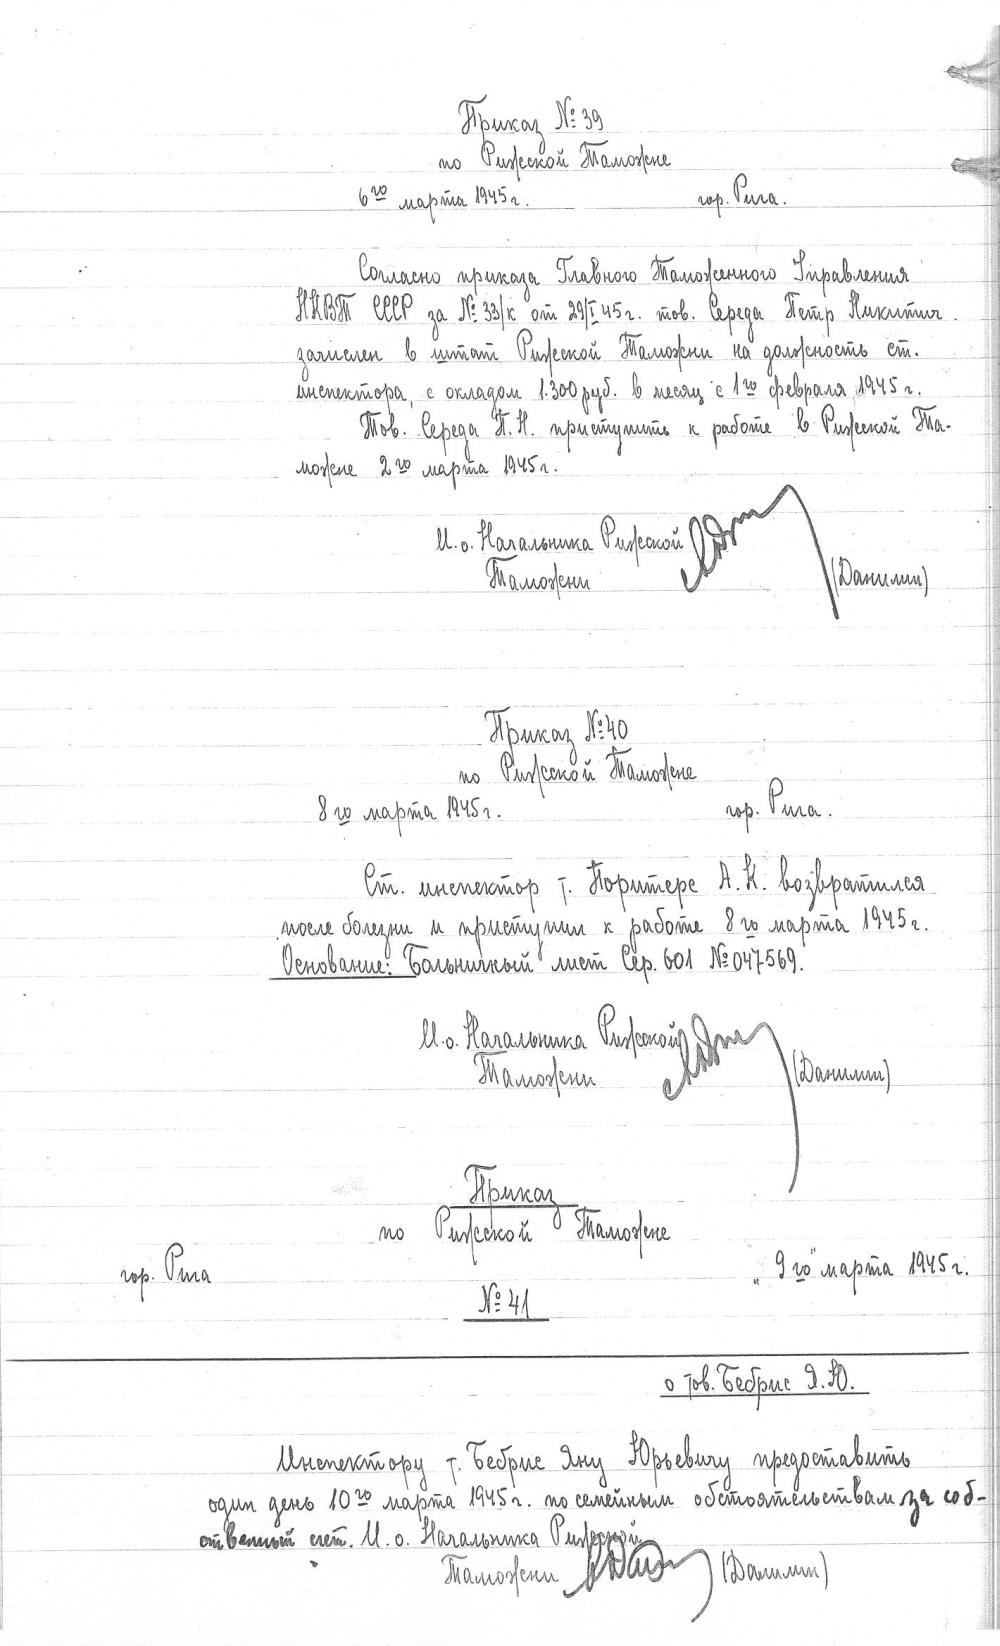 Приказ № 39
по Рижской Таможне
6го марта 1945 г. гор. Рига.
Согласно приказа Главного Таможенного Управления
НКВТ СССР за № 33/к от 29/I 45 г. тов. Середа Петр Никитич
зачислен в штат Рижской Таможни на должность ст.
инспектора, с окладом 1.300 руб. в месяц с 1го февраля 1945 г.
Тов. Середа П.Н. приступить к работе в Рижской Та-
можне 2го марта 1945 г.
И.о. Начальника Рижской
Таможни (Данилин)
Приказ № 40
по Рижской Таможне
8го марта 1945 г. гор. Рига.
Ст. инспектор т. Поритере А.К. возвратился
после болезни и приступил к работе 8го марта 1945 г.
Основание: Больничный лист Сер. 601 № 047569.
И.о. Начальника Рижской
Таможни (Данилин)
Приказ
по Рижской Таможне
гор. Рига „9го" марта 1945 г.
№ 41
о тов. Бебрис Я.Ю.
Инспектору т. Бебрис Яну Юрьевичу предоставить
один день 10го марта 1945 г. по семейным обстоятельствам за соб-
ственный счет. И.о. Начальника Рижской
Таможни (Данилин)